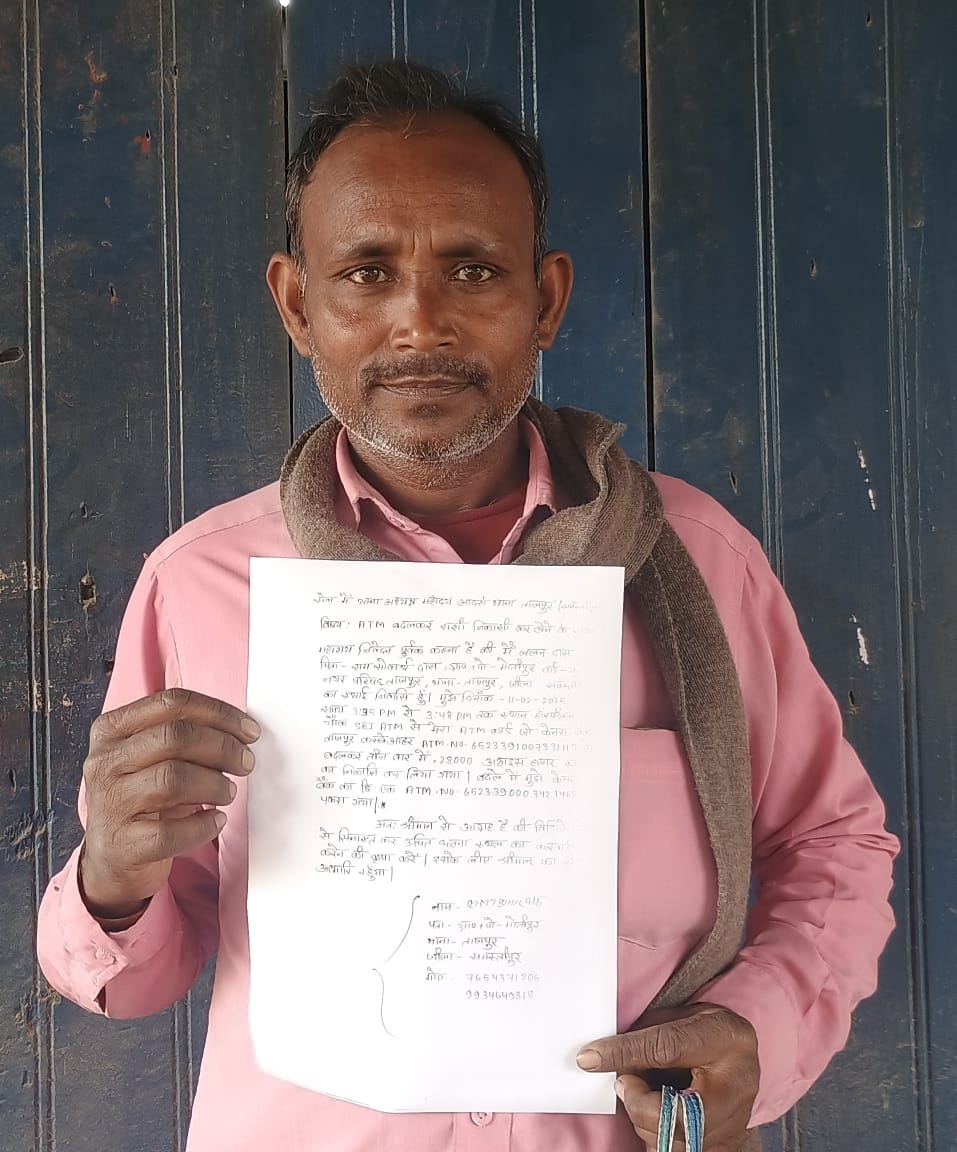 सेवा में थाना अध्यक्ष महोदय आदर्श थाना ताजपुर
विषय: ATM बदलकर राशी निकासी कर लेने के
महाशय निवेदन पुर्वक कहना है की मैं ललन दास
पिता- राम सोगार्थ दास ग्रा०+पो- मोतीपुर वार्ड-
नगर परिषद ताजपुर, थाना- ताजपुर, जीला-
का स्थाई निवासि हुँ। मुझे दिनाँक - 11-02-2025
समय 3:35 PM से 3:48 PM तक स्थान हॉस्पीटल
चौक SBI ATM से मेरा ATM कार्ड जो केनरा
ताजपुर ATM-NO-
बदलकर तीन बार में, 28000 अठाइस हजार
का निकासि कर लिया गया। बदले में मुझे केनरा
बैंक का हि एक ATM-NO-
पकरा गया।
अतः श्रीमान से आग्रह है की
से कर उचित स्थल का
करने की कृपा करें। इसके लीए श्रीमान का
आभारि रहुँगा।
नाम -
पता - ग्रा०+पो- मोतीपुर
थाना- ताजपुर
जीला- समस्तीपुर
मो० - 7654371206
9934649818